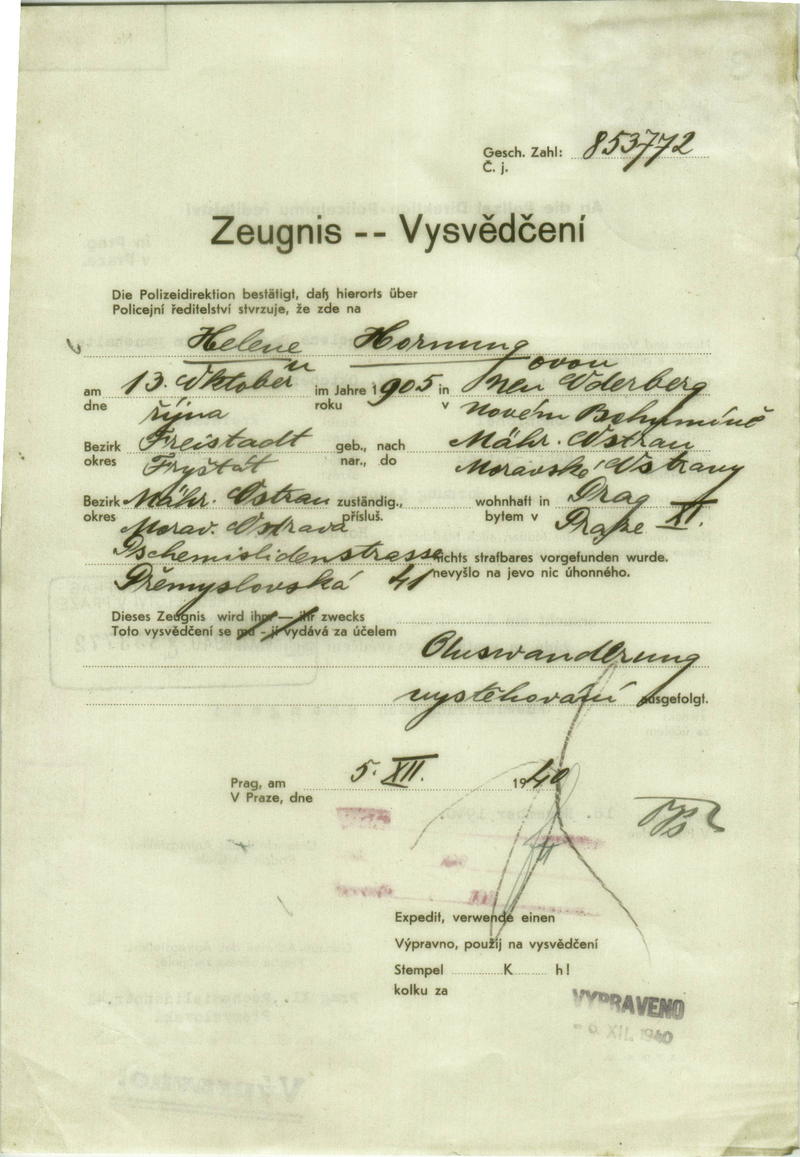 Gesch. Zahl: 853772
Č. j.
Zeugnis -- Vysvědčení
Die Polizeidirektion bestätigt, daß hierorts über
Policejní ředitelství stvrzuje, že zde na
Helene Hornung
ovou
am 13. Oktober im Jahre 1905 in Neu Oderberg
dne října roku v Novém Bohumíně
Bezirk Freistadt geb., nach Mähr. Ostrau
okres Fryštát nar., do Moravské Ostravy
Bezirk Mähr. Ostrau zuständig., wohnhaft in Prag
okres Morav. Ostrava přísluš. bytem v Praze XI.
Pschemislidenstrasse nichts strafbares vorgefunden wurde.
Přemyslovská 41 nevyšlo na jevo nic úhonného.
Dieses Zeugnis wird ihm — ihr zwecks
Toto vysvědčení se mu - jí vydává za účelem
Auswanderung
vystěhování ausgefolgt.
Prag, am 5. XII. 1940
V Praze, dne
Expedit, verwende einen
Výpravno, použij na vysvědčení
Stempel K h!
kolku za
VYPRAVENO
- 6 XII. 1940